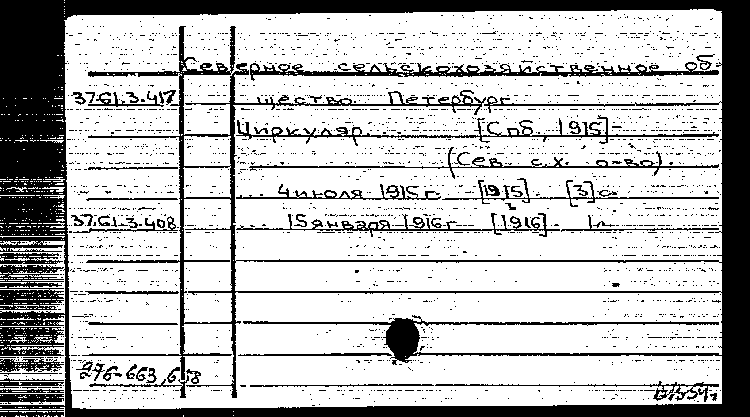 Северное сельскохозяйственное об-
37.61.3.417 щество. Петербург.
Циркуляр... [Спб., 1915]-
(Сев. с.х. о-во).
... 4 июля 1915 г. [1915]. [3] с.
37.61.3.408 ... 15 января 1916 г. [1916]. 1 л.
276-663,658